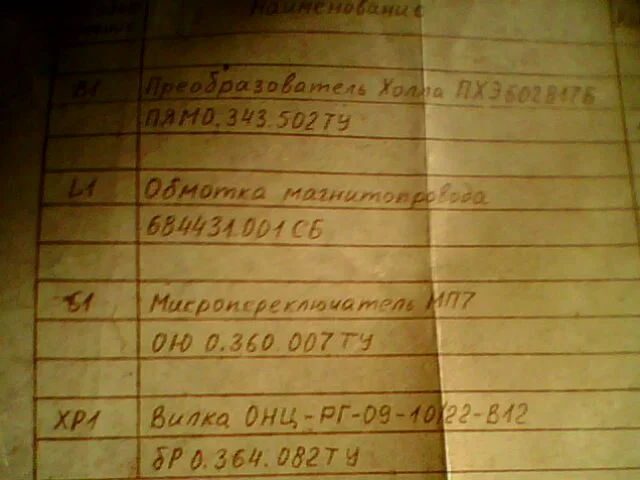 Наименование
B1 Преобразователь Холла ПХЭ602817Б
ПЯМ0.343.502ТУ
L1 Обмотка магнитопровода
684431.001СБ
S1 Микропереключатель МП7
ОЮ 0.360 007ТУ
XP1 Вилка ОНЦ-РГ-09-10/22-В12
бР0.364.082ТУ